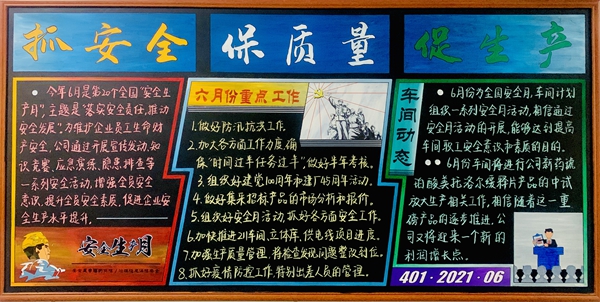 抓安全 保质量 促生产
● 今年6月是第20个全国“安全生
产月”,主题是“落实安全责任,推动
安全发展”,为维护企业员工生命财
产安全,公司通过开展宣传发动,知
识竞赛,应急演练,隐患排查等
一系列安全活动,增强全员安全
意识,提升全员安全素质,促进企业安
全生产水平提升。
安全生产月
六月份重点工作
1.做好防汛抗洪工作。
2.加大各方面工作力度,确
保“时间过半任务过半”,做好半年考核。
3.组织好建党100周年和建厂45周年活动。
4.做好集采招标产品的市场分析和报价。
5.组织好安全月活动,抓好各方面安全工作。
6.加快推进211车间,立体库,供电线项目进度。
7.加强生产质量管理,将检查发现问题整改到位。
8.抓好疫情防控工作,特别出差人员的管理。
车间动态
● 6月份为全国安全月,车间计划
组织一系列安全月活动,相信通过
安全月活动的开展,能够达到提高
车间职工安全意识和素质的目的。
● 6月份车间将进行公司新药硫
酸类托洛尔缓释片产品的中试
放大生产相关工作,相信随着这一重
磅产品的逐步推进,公
司又将迎来一个新的
利润增长点。
401·2021·06